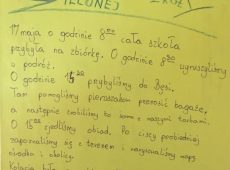 ZIELONEJ
17 maja o godzinie 8⁰⁰ cała szkoła
przybyła na zbiórkę. O godzinie 8³⁰ wyruszyliśmy
w podróż.
O godzinie przybyliśmy do Bęsi.
Tam pomogliśmy pierwszakom przenosić bagaże,
a następnie zrobiliśmy to same z naszymi torbami.
O zjedliśmy obiad. Po ciszy poobiedniej
zapoznaliśmy się z terenem i narysowaliśmy mapę
ośrodka i okolicy.
Kolacja była